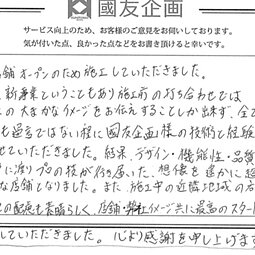 國友企画
サービス向上のため、お客様のご意見をお伺いしております。
気が付いた点、良かった点などをお書き頂けると幸いです。
舗オープンのため施工していただきました。
新事業ということもあり施工前の打ち合わせでは
の大まかなイメージをお伝えすることしか出来ず、全て
も過言ではない程に國友企画様の技術と経験
せていただきました。結果、デザイン・機能性・品質
に渡りプロの技が行き届いた、想像を遥かに超
な店舗となりました。また、施工中の近隣地域の方
の配慮も素晴らしく、店舗・弊社イメージ共に最高のスター
していただきました。心より感謝を申し上げます